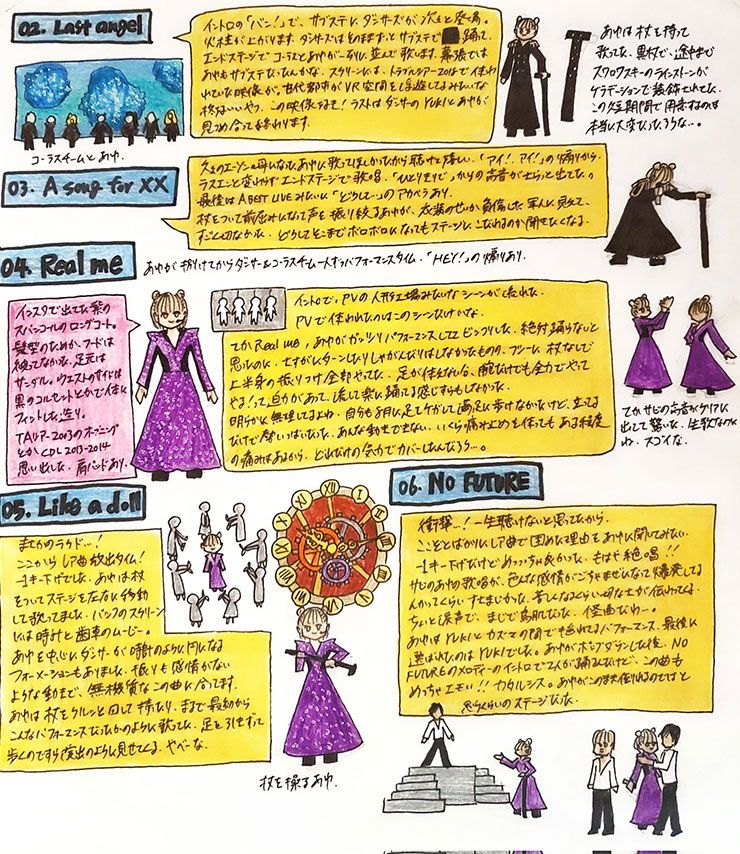 02. Last angel
イントロの「バン!」で、サブステにダンサーが次々と登場。
火柱が上がります。ダンサーズはそのままずっとサブステで踊って、
エンドステージでコーラスとあゆが一列に並んで歌います。幕張では
あゆもサブステだったんかな。スクリーンは、トラブルツアー2018で使わ
れていた映像が。古代都市がVR空間を浮遊してるみたいな
この映像ですよ!ラストはダンサーのYUKIとあゆが
見つめ合って終わります。
コーラスチームとあゆ。
あゆは杖を持って
歌ってた。黒杖で、途中まで
スワロフスキーのラインストーンが
グラデーションで装飾されてた。
この短期間で用意するのは
本当に大変だったろうな…。
03. A song for XX
あゆに歌ってほしかったから聴けて嬉しい。「アイ!、アイ!」の煽りから。
ラスエンと変わらずエンドステージで歌唱。「ひとりきりで」からの高音がすらっと出てた。
最後はA BEST LIVEみたいに「どうして…」のアカペラあり。
杖をついて前屈みになって声を振り絞るあゆが、衣装のせいか負傷した軍人に見えて、
すごく切なかった。どうしてそこまでボロボロになってもステージにこだわるのか聞きたくなる。
04. Real me
あゆが捌けてからダンサー&コーラスチームのパフォーマンスタイム。「HEY!」の煽りあり。
インスタで出てた紫の
スパンコールのロングコート。
髪型のためか、フードは
被ってなかった。足元は
サンダル。ウエストのサイドは
黒のコルセットとかで体に
フィットした造り。
TAはP-2003のオープニング
とかCDL2013-2014
思い出した。肩バンドあり。
イントロで、PVの人形工場みたいなシーンが流れた。
PVで使われたのはこのシーンだけかな。
てかReal me、あゆがガッツリパフォーマンスしててビックリした。絶対踊らないと
思ったのに。さすがにターンしたりしゃがんだりはしなかったものの、フツーに杖なしで
上半身の振りつけ全部やってた。足が使えないなら、腕だけでも全力でやって
やる!って迫力があって、流して楽に踊ってる感じすらもしなかった。
明らかに無理してるよね。自分も8月に足をケガして満足に歩けなかったけど、立ってる
だけで精いっぱいだった。あんな動きできない。いくら痛み止めを使ってもある程度
の痛みはあるから、どれだけの気力でカバーしたんだろう…。
てかサビの高音がクリアに
出てて驚いた。生歌なのに
ね。スゴイな。
05. Like a doll
まさかのラウド…!
ここからレア曲放出タイム!
-1キー下げでした。あゆは杖
をついてステージを左右に移動
して歌ってました。バックのスクリーン
には時計と歯車のムービー。
あゆを中心にダンサーが時計のように円になる
フォーメーションもありました。振りも感情がない
ような動きで、無機質なこの曲に合ってます。
あゆは杖をクルンと回して持ったり、まるで最初から
こんなパフォーマンスだったかのように歌ってた。足を引きずって
歩くのですら演出のように見せてくる。やべーな。
杖を操るあゆ。
06. NO FUTURE
衝撃…!一生聴けないと思ってたから。
こことばかりにレア曲で固めた理由をあゆに聞いてみたい。
-1キー下げだけどめっっちゃ良かった。もはや絶唱!!
サビのあゆの歌唱が、色んな感情がごちゃまぜになって爆発してる
んかってくらいすさまじかった。苦しくなるくらい切なさが伝わってくる。
ちょいと涙声で、まじで鳥肌だった。怪曲だわー。
あゆはYUKIとカズマの間で揺れてるパフォーマンス。最後に
選ばれたのはYUKIでした。あゆがポップダウンした後、NO
FUTUREのメロディーのイントロで2人が踊るんだけど、この曲も
めっちゃエモい!!カタルシス。あゆがこのまま作りあげるのではと
思うくらいのステージだった。